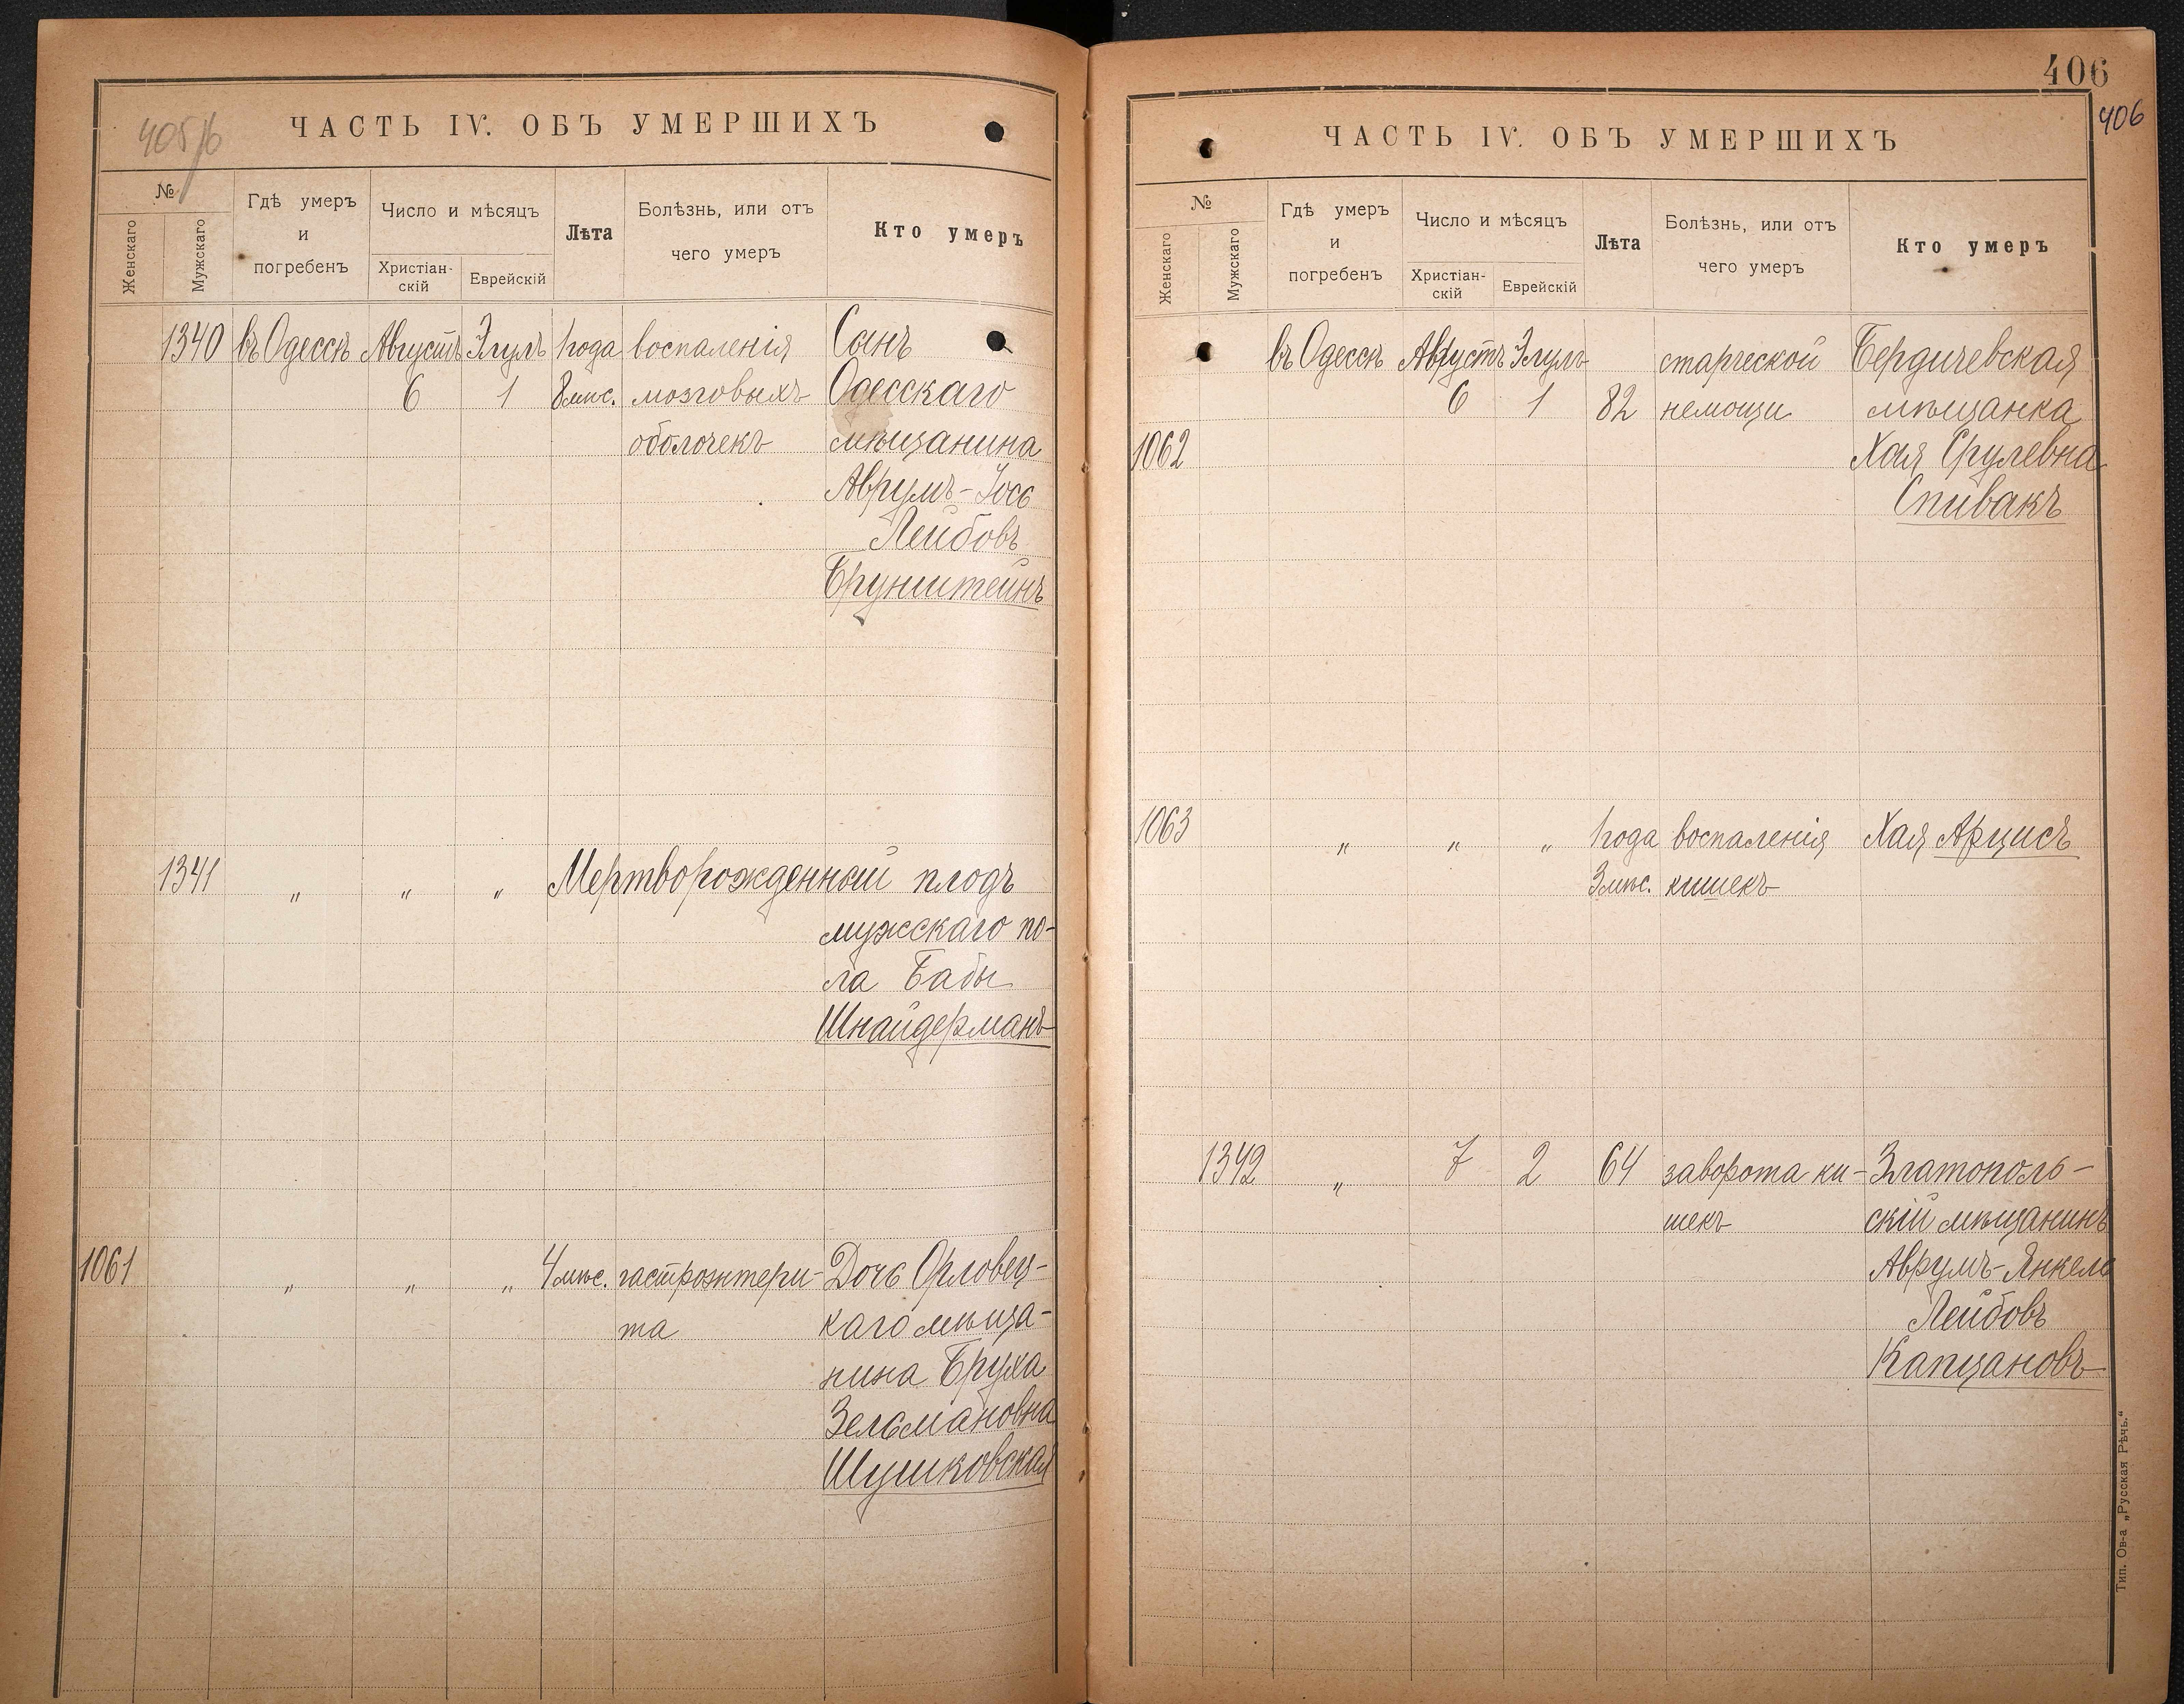 405/б
ЧАСТЬ IV. ОБЪ УМЕРШИХЪ
№
Женскаго
Мужскаго
Гдѣ умеръ
и
погребенъ
Число и мѣсяцъ
Христіан-
скій
Еврейскій
Лѣта
Болѣзнь, или отъ
чего умеръ
Кто умеръ
1340 въ Одессѣ Августъ Элулъ 1 года воспаленія Сынъ
6 1 8 мѣс. мозговыхъ Одесскаго
оболочекъ мѣщанина
Аврумъ-Іось
Лейбовъ
Брунштейнъ
1341 " " " Мертворожденный плодъ
мужскаго по-
ла Бабы
Шнайдерманъ
1061 " " " 4 мѣс. гастроэнтери- Дочь Орловец-
та каго мѣща-
нина Бруха
Зельмановна
Шушковская
406
406
ЧАСТЬ IV. ОБЪ УМЕРШИХЪ
№
Женскаго
Мужскаго
Гдѣ умеръ
и
погребенъ
Число и мѣсяцъ
Христіан-
скій
Еврейскій
Лѣта
Болѣзнь, или отъ
чего умеръ
Кто умеръ
въ Одессѣ Августъ Элулъ старческой Бердичевская
6 1 82 немощи мѣщанка
1062 Хая Срулевна
Спивакъ
1063 " " " 1 года воспаленія Хая Арцисъ
3 мѣс. кишекъ
1342 " 7 2 64 заворота ки- Златополь-
шекъ скій мѣщанинъ
Аврумъ-Янкель
Лейбовъ
Капцановъ
Тип. Ов-а „Русская Рѣчь.“